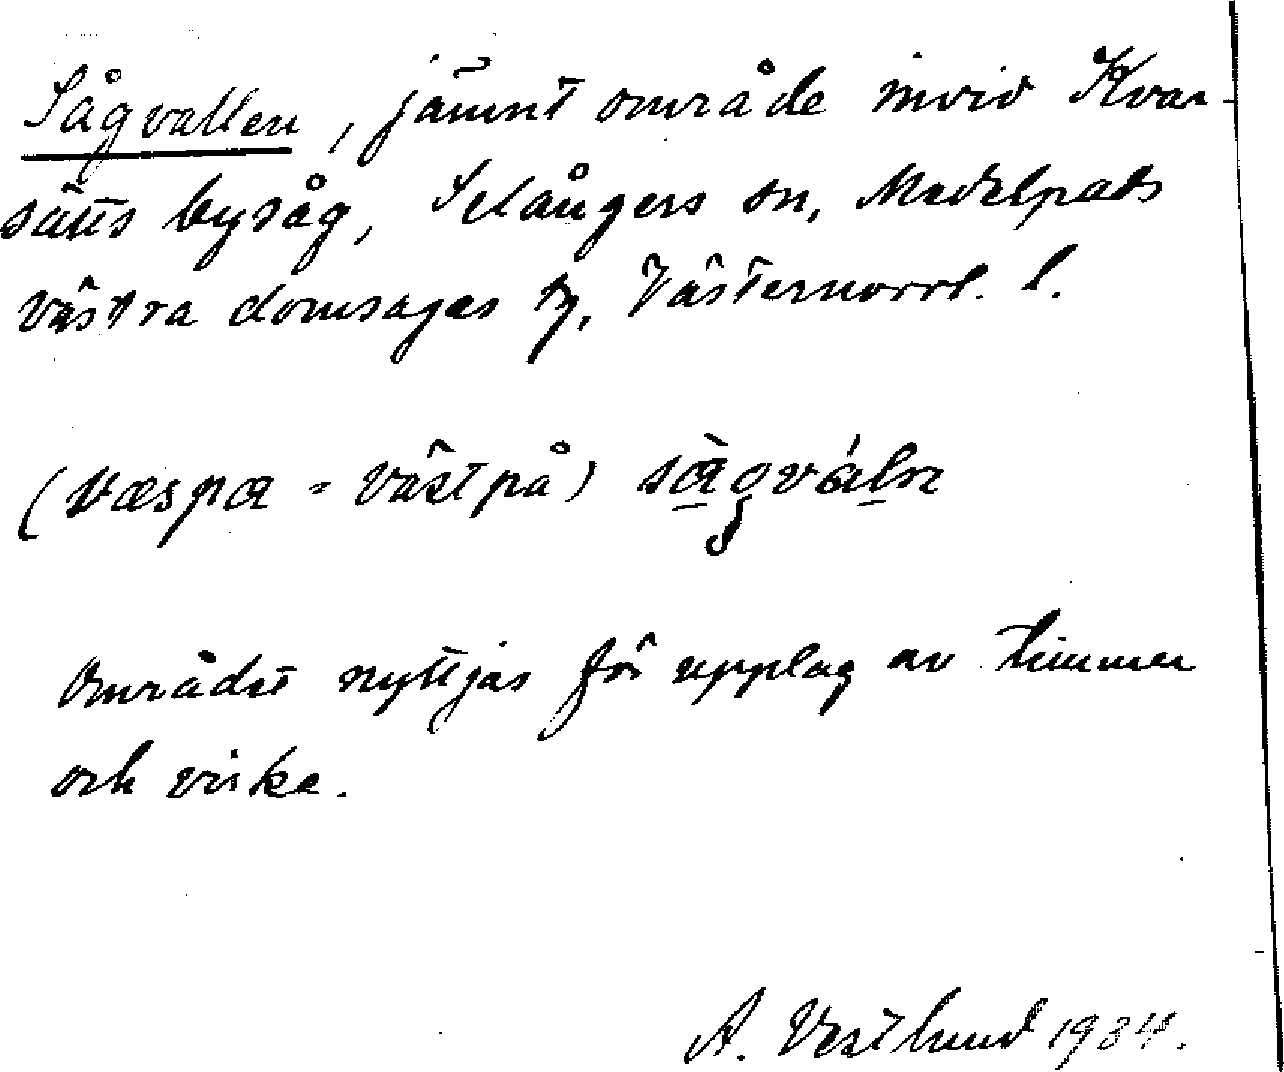 Sågvallen, jämnt område invid Kvar-
sätts bysåg, Selångers sn, Medelpads
västra domsagas tg, Västernorrl. l.
(væspa = västpå) sàgváln
Området nyttjas för upplag av timmer
och virke.
A. Vestlund 1934.